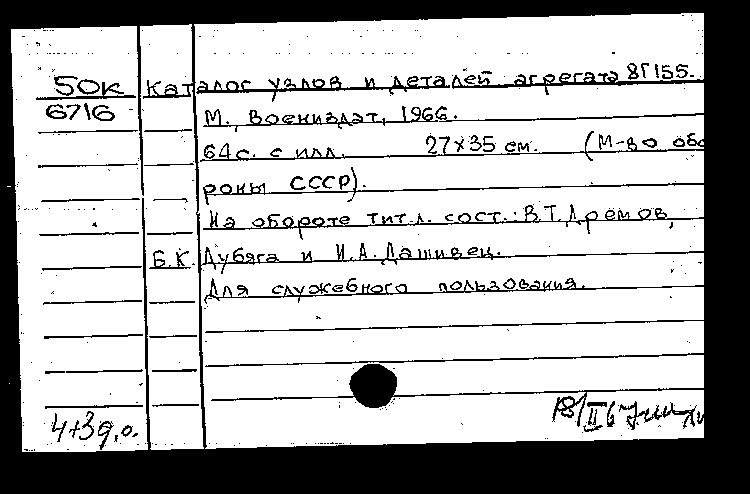 50к Каталог узлов и деталей агрегата 8Г155.
6716 М., Воениздат, 1966.
64 с. с илл. 27×35 см. (М-во обо
роны СССР).
На обороте тит.л. сост.: В.Т. Дремов,
Б.К. Дубяга и И.А. Дашивец.
Для служебного пользования.
4+3 д.о. 18/II 67